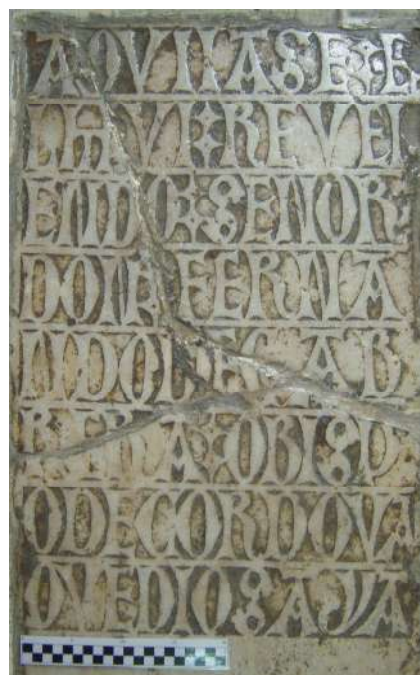 AQVI IASE:E
L MVI:REVER
ENDO:SENOR
DON FERNA
NDO DE CAB
RERA:OBISP
O DE CORDOVA
QVE DIOS AYA